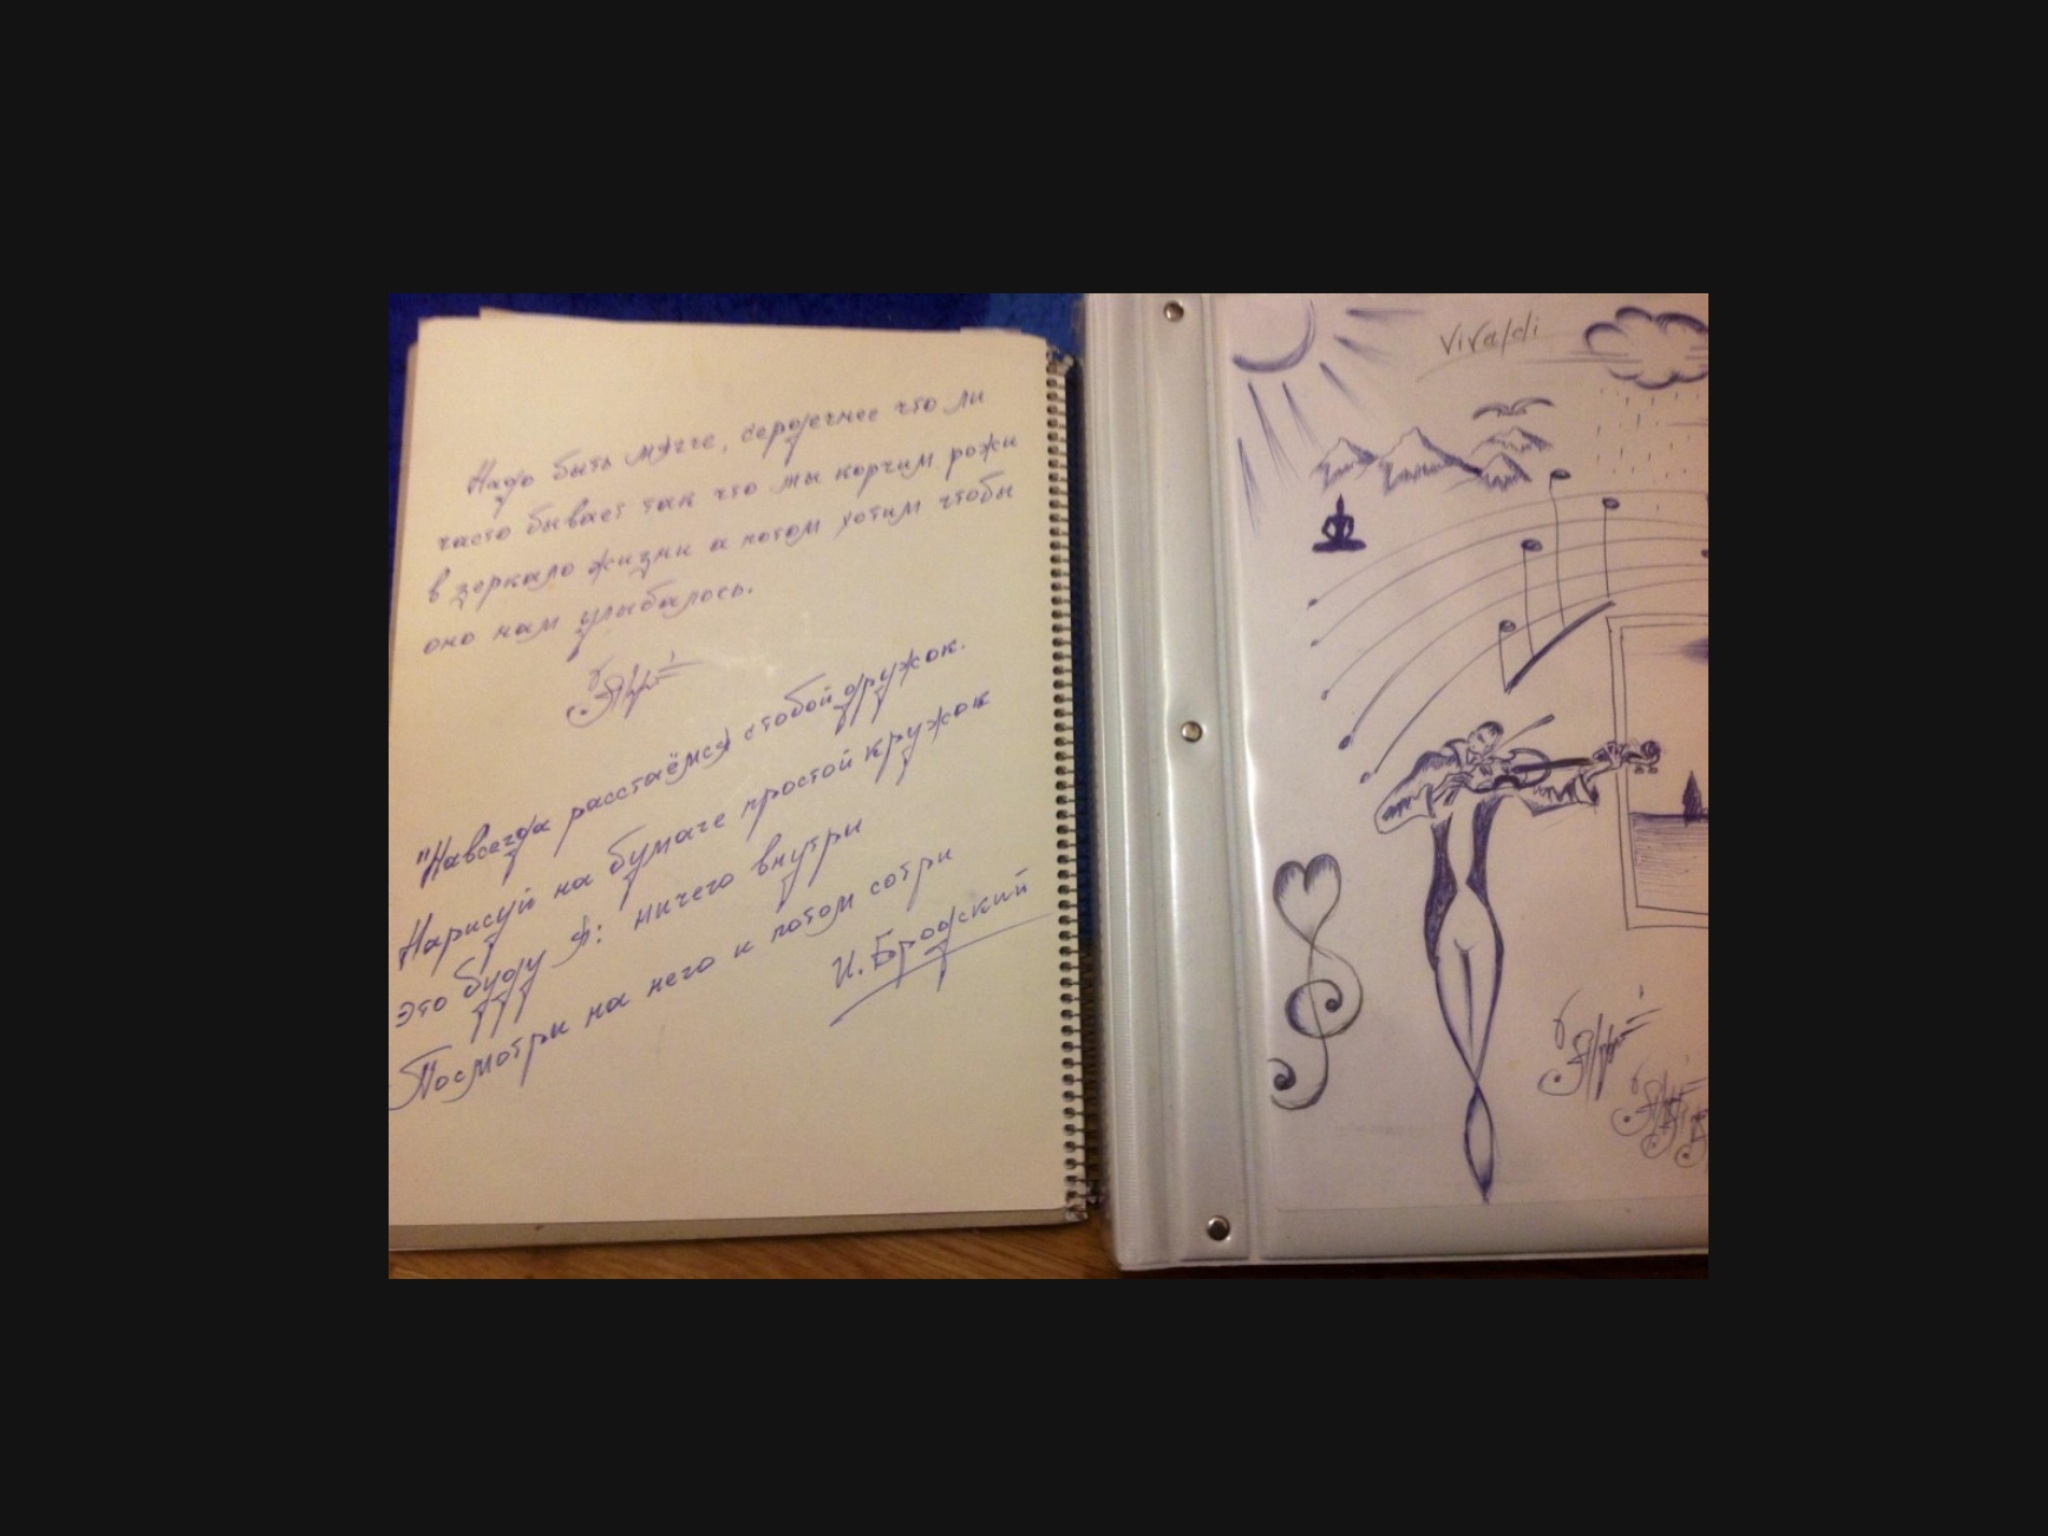 Надо быть мягче, сердечнее что ли
часто бывает так что мы корчим рожи
в зеркало жизни а потом хотим чтобы
оно нам улыбалось.
"Навсегда расстаёмся с тобой дружок.
Нарисуй на бумаге простой кружок
это буду я: ничего внутри
Посмотри на него и потом сотри
И. Бродский
Vivaldi